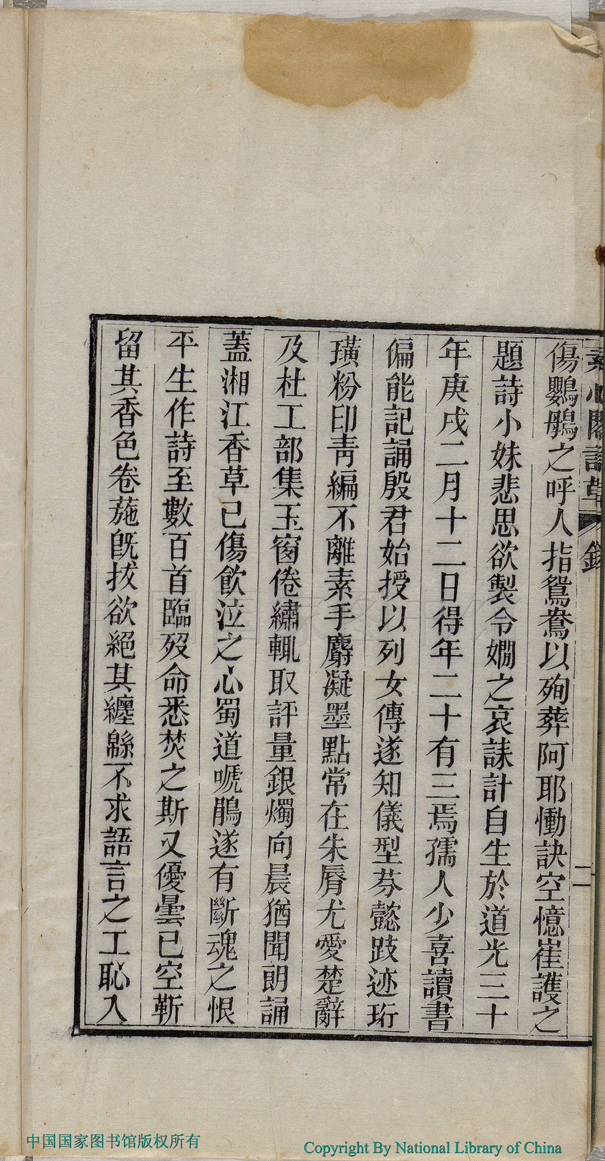 素心閣詩草 錄
二
傷鸚鵡之呼人指鴛鴦以殉葬阿耶慟訣空憶崔護之
題詩小妹悲思欲製令嫺之哀誄計自生於道光三十
年庚戌二月十二日得年二十有三焉孺人少喜讀書
偏能記誦殷君始授以列女傳遂知儀型芬懿跂迹珩
璜粉印靑編不離素手麝凝墨點常在朱脣尤愛楚辭
及杜工部集玉窗倦繡輒取評量銀燭向晨猶聞朗誦
蓋湘江香草已傷飲泣之心蜀道嗁鵑遂有斷魂之恨
平生作詩至數百首臨歿命悉焚之斯又優曇已空靳
留其香色卷葹旣拔欲絕其纏緜不求語言之工恥入
中国国家图书馆版权所有
Copyright By National Library of China